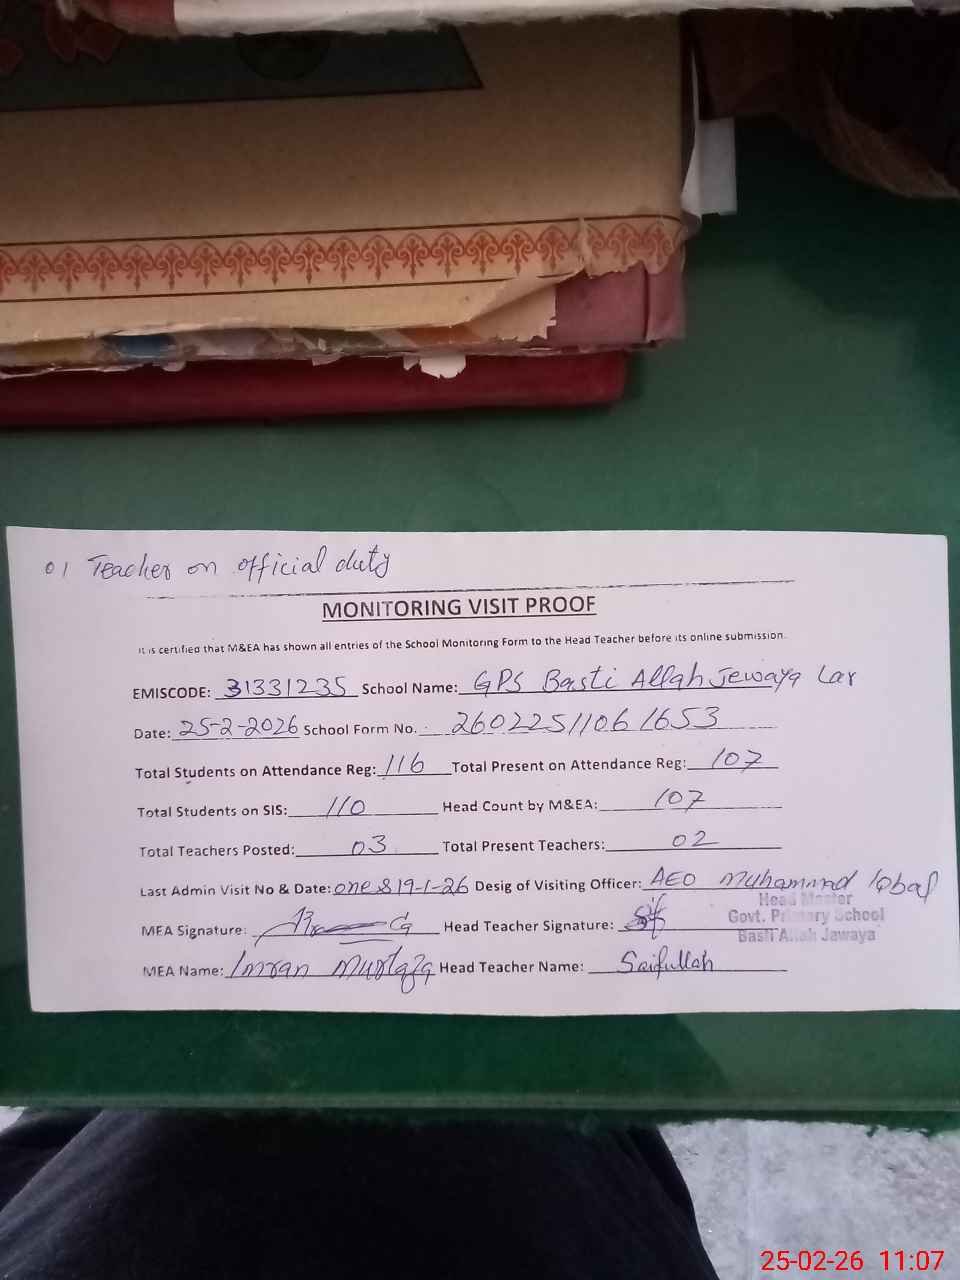 01 Teacher on official duty
MONITORING VISIT PROOF
It is certified that M&EA has shown all entries of the School Monitoring Form to the Head Teacher before its online submission.
EMISCODE: 31331235 School Name: GPS Basti Allah Jewaya Lar
Date: 25-2-2026 School Form No. 26022511061653
Total Students on Attendance Reg: 116 Total Present on Attendance Reg: 107
Total Students on SIS: 110 Head Count by M&EA: 107
Total Teachers Posted: 03 Total Present Teachers: 02
Last Admin Visit No & Date: one & 19-1-26 Desig of Visiting Officer: AEO Muhammad Iqbal
Head Master
Govt. Primary School
Basti Allah Jewaya
MEA Signature: Head Teacher Signature:
MEA Name: Imran Mustafa Head Teacher Name: Saifullah
25-02-26 11:07